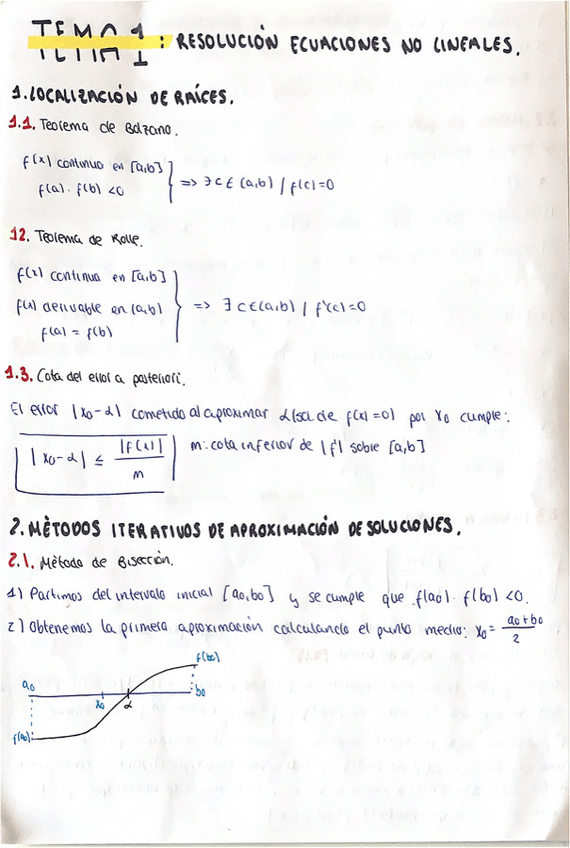 TEMA 1: RESOLUCIÓN ECUACIONES NO LINEALES.
1. LOCALIZACIÓN DE RAÍCES.
1.1. Teorema de Bolzano.
f(x) continua en [a,b]
f(a) · f(b) < 0
=> ∃ c ∈ (a,b) / f(c)=0
12. Teorema de Rolle.
f(x) continua en [a,b]
f(x) derivable en (a,b)
f(a) = f(b)
=> ∃ c ∈ (a,b) / f'(c)=0
1.3. Cota del error a posteriori.
El error |x₀-α| cometido al aproximar α (sol. de f(x)=0) por x₀ cumple:
|x₀-α| ≤ |f(x)| / m
m: cota inferior de |f'| sobre [a,b]
2. MÉTODOS ITERATIVOS DE APROXIMACIÓN DE SOLUCIONES.
2.1. Método de Bisección.
1) Partimos del intervalo inicial [a₀,b₀] y se cumple que f(a₀) · f(b₀) < 0.
2) Obtenemos la primera aproximación calculando el punto medio: x₀ = a₀+b₀ / 2
f(b₀)
a₀
x₀
α
b₀
f(a₀)